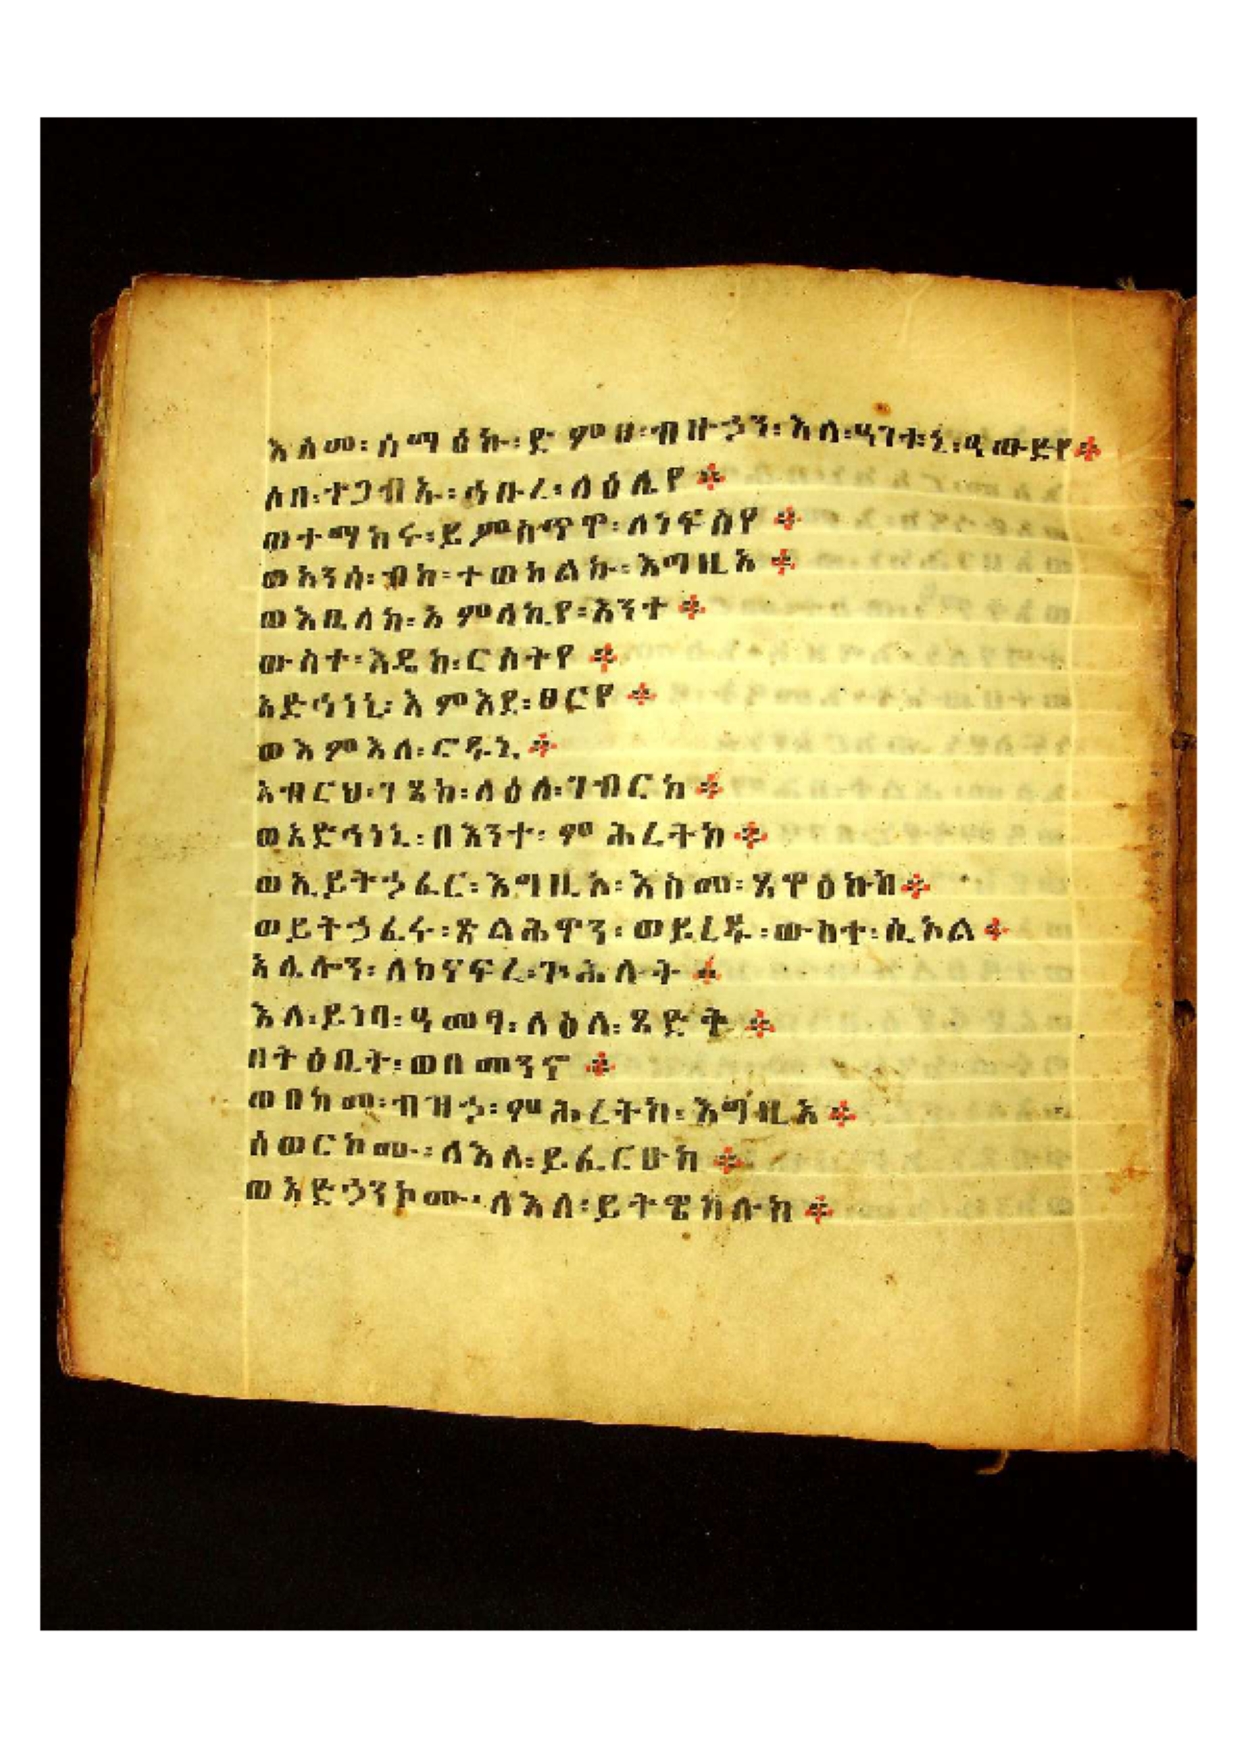 እስመ፡ሰማዕኩ፡ድምፀ፡ብዙኃን፡እለ፡ዓገቱኒ፡ዓውድየ፨
ሶበ፡ተጋብኡ፡ኅቡረ፡ላዕሌየ፨
ወተማከሩ፡ይምስጥዋ፡ለነፍስየ፨
ወአንሰ፡ብከ፡ተወከልኩ፡እግዚአ፨
ወእቤለከ፡አምላኪየ፡አንተ፨
ውስተ፡እዴከ፡ርስትየ፨
አድኅነኒ፡እምእደ፡ፀርየ፨
ወእምእለ፡ሮዱኒ፨
አብርህ፡ገጸከ፡ላዕለ፡ገብርከ፨
ወአድኅነኒ፡በእንተ፡ምሕረትከ፨
ወኢይትኃፈር፡እግዚአ፡እስመ፡ጸዋዕኩከ፨
ወይትኃፈሩ፡ጽልሕዋን፡ወይረዱ፡ውስተ፡ሲኦል፨
አሌሎን፡ለከናፍረ፡ጕሕሉት፨
እለ፡ይነባ፡ዓመፃ፡ላዕለ፡ጻድቅ፨
በትዕቢት፡ወበመንኖ፨
ወበከመ፡ብዝኃ፡ምሕረትከ፡እግዚአ፨
ሰወርኮሙ፡ለእለ፡ይፈርሁከ፨
ወአድኃንኮሙ፡ለእለ፡ይትዌከሉከ፨